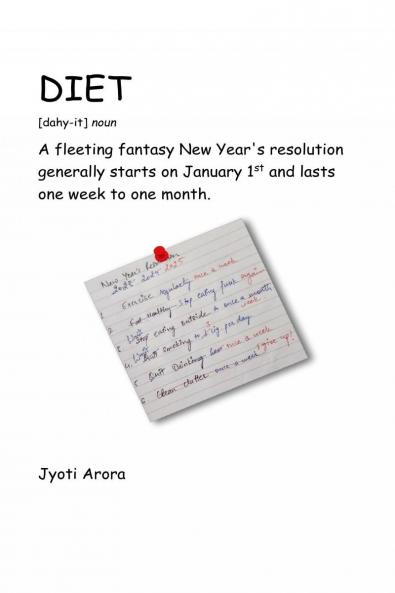 DIET
[dahy-it] noun
A fleeting fantasy New Year's resolution
generally starts on January 1st and lasts
one week to one month.
New Year's
2023 2024 2025
1 Exercise regularly once a week
2 Eat Healthy Stop eating junk again
3 Stop eating outside once a month week
4. Quit Smoking to cig per day
5 Quit Drinking beer once a week
6 Clean clutter once a week I give up!
Jyoti Arora